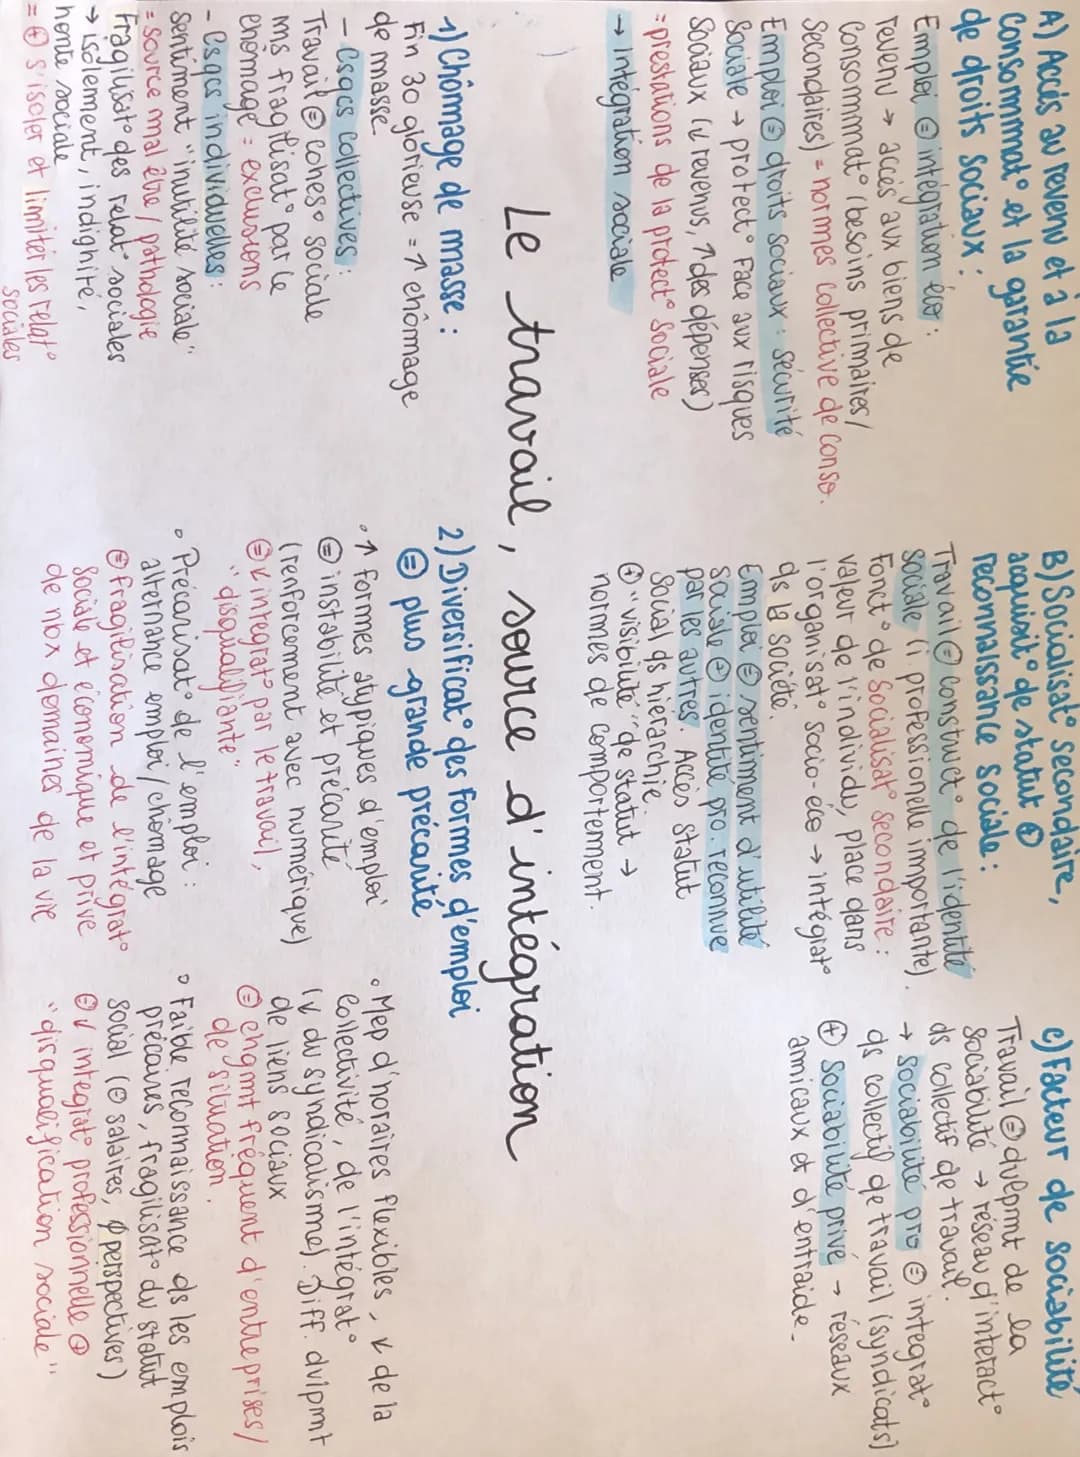 A) Accès au revenu et à la
consommmat° et la garantie
de droits sociaux :
Emploi ⊜ intégration éco :
revenu → accès aux biens de
consommat° (besoins primaires/
secondaires) = normes collective de conso.
Emploi ⊜ droits sociaux : sécurité
sociale → protect° face aux risques
sociaux (↓ revenus, ↑ des dépenses)
= prestations de la protect° sociale
→ Intégration sociale
B) Socialisat° secondaire,
acquisit° de statut ⊕
reconnaissance sociale :
Travail ⊜ construct° de l'identité
sociale (i. professionelle importante).
Fonct° de socialisat° secondaire :
valeur de l'individu, place dans
l'organisat° socio-éco → intégrat°
ds la société.
Emploi ⊜ sentiment d'utilité
sociale ⊕ identité pro. reconnue
par les autres. Accès statut
social ds hiérarchie.
⊕ "visibilité" de statut →
normes de comportement.
c) Facteur de sociabilité
Travail ⊜ dvlepmt de la
sociabilité → réseau d'interact°
ds collectif de travail.
→ sociabilité pro ⊜ intégrat°
ds collectif de travail (syndicats)
⊕ sociabilité privé → réseaux
amicaux et d'entraide.
Le travail, source d'intégration
1) Chômage de masse :
Fin 30 glorieuse = ↑ chômage
de masse.
- Csqcs collectives :
Travail ⊜ cohes° sociale
ms fragilisat° par le
chômage = exclusions
- Csqcs individuelles :
sentiment "inutilité sociale"
= source mal être / pathologie
Fragilisat° des relat° sociales
→ isolement, indignité,
honte sociale
= ⊕ s'isoler et limiter les relat°
sociales
2) Diversificat° des formes d'emploi
⊜ plus grande précarité
° ↑ formes atypiques d'emploi
⊜ instabilité et précarité
(renforcement avec numérique)
⊜ ↓ intégrat° par le travail,
"disqualifiante"
° Précarisat° de l'emploi :
alternance emploi/chômage
⊜ fragilisation de l'intégrat°
sociale et économique et prive
de nbx domaines de la vie
° Mep d'horaires flexibles, ↓ de la
collectivité, de l'intégrat°
(↓ du syndicalisme). Diff. dvlpmt
de liens sociaux
⊜ chgmt fréquent d'entreprises/
de situation.
° Faible reconnaissance ds les emplois
précaires, fragilisat° du statut
social (⊖ salaires, ∅ perspectives)
⊜ ↓ integrat° professionnelle ⊕
"disqualification sociale"